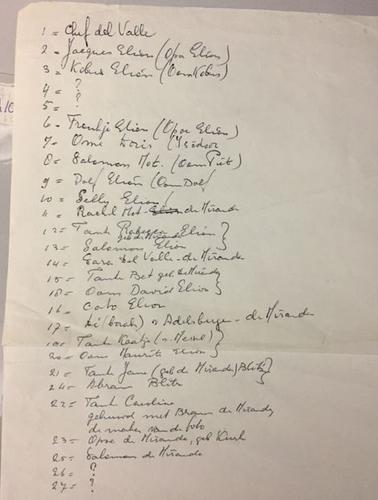 1 = Chef del Valle
2 = Jacques Elion (Opa Elion)
3 = Kobus Elion (Oom Kobus)
4 = ?
5 = ?
6 = Frentje Elion (Opoe Elion)
7 = Ome Loris (Isidoor
8 = Salomon Mot. (Oom Piet)
9 = Dolf Elion (Oom Dolf
10 = Selly Elion
11 = Rachel Mot- de Miranda
12 = Tante Rebecca Elion
geb de Miranda
13 = Salomon Elion
14 = Sara del Valle - de Miranda
15 = Tante Bet geb de Miranda
18 = Oom David Elion
16 = Cato Elion
17 = Adelsberger - de Miranda
19 = Tante Kaatje (v. Messel)
20 = Oom Maurits Elion
21 = Tante Jans (geb de Miranda) Blitz
24 = Abram Blitz
22 = Tante Caroline
gehuwd met Bram de Miranda
de maker van de foto
23 = Opoe de Miranda, geb
25 = Salomon de Miranda
26 = ?
27 = ?